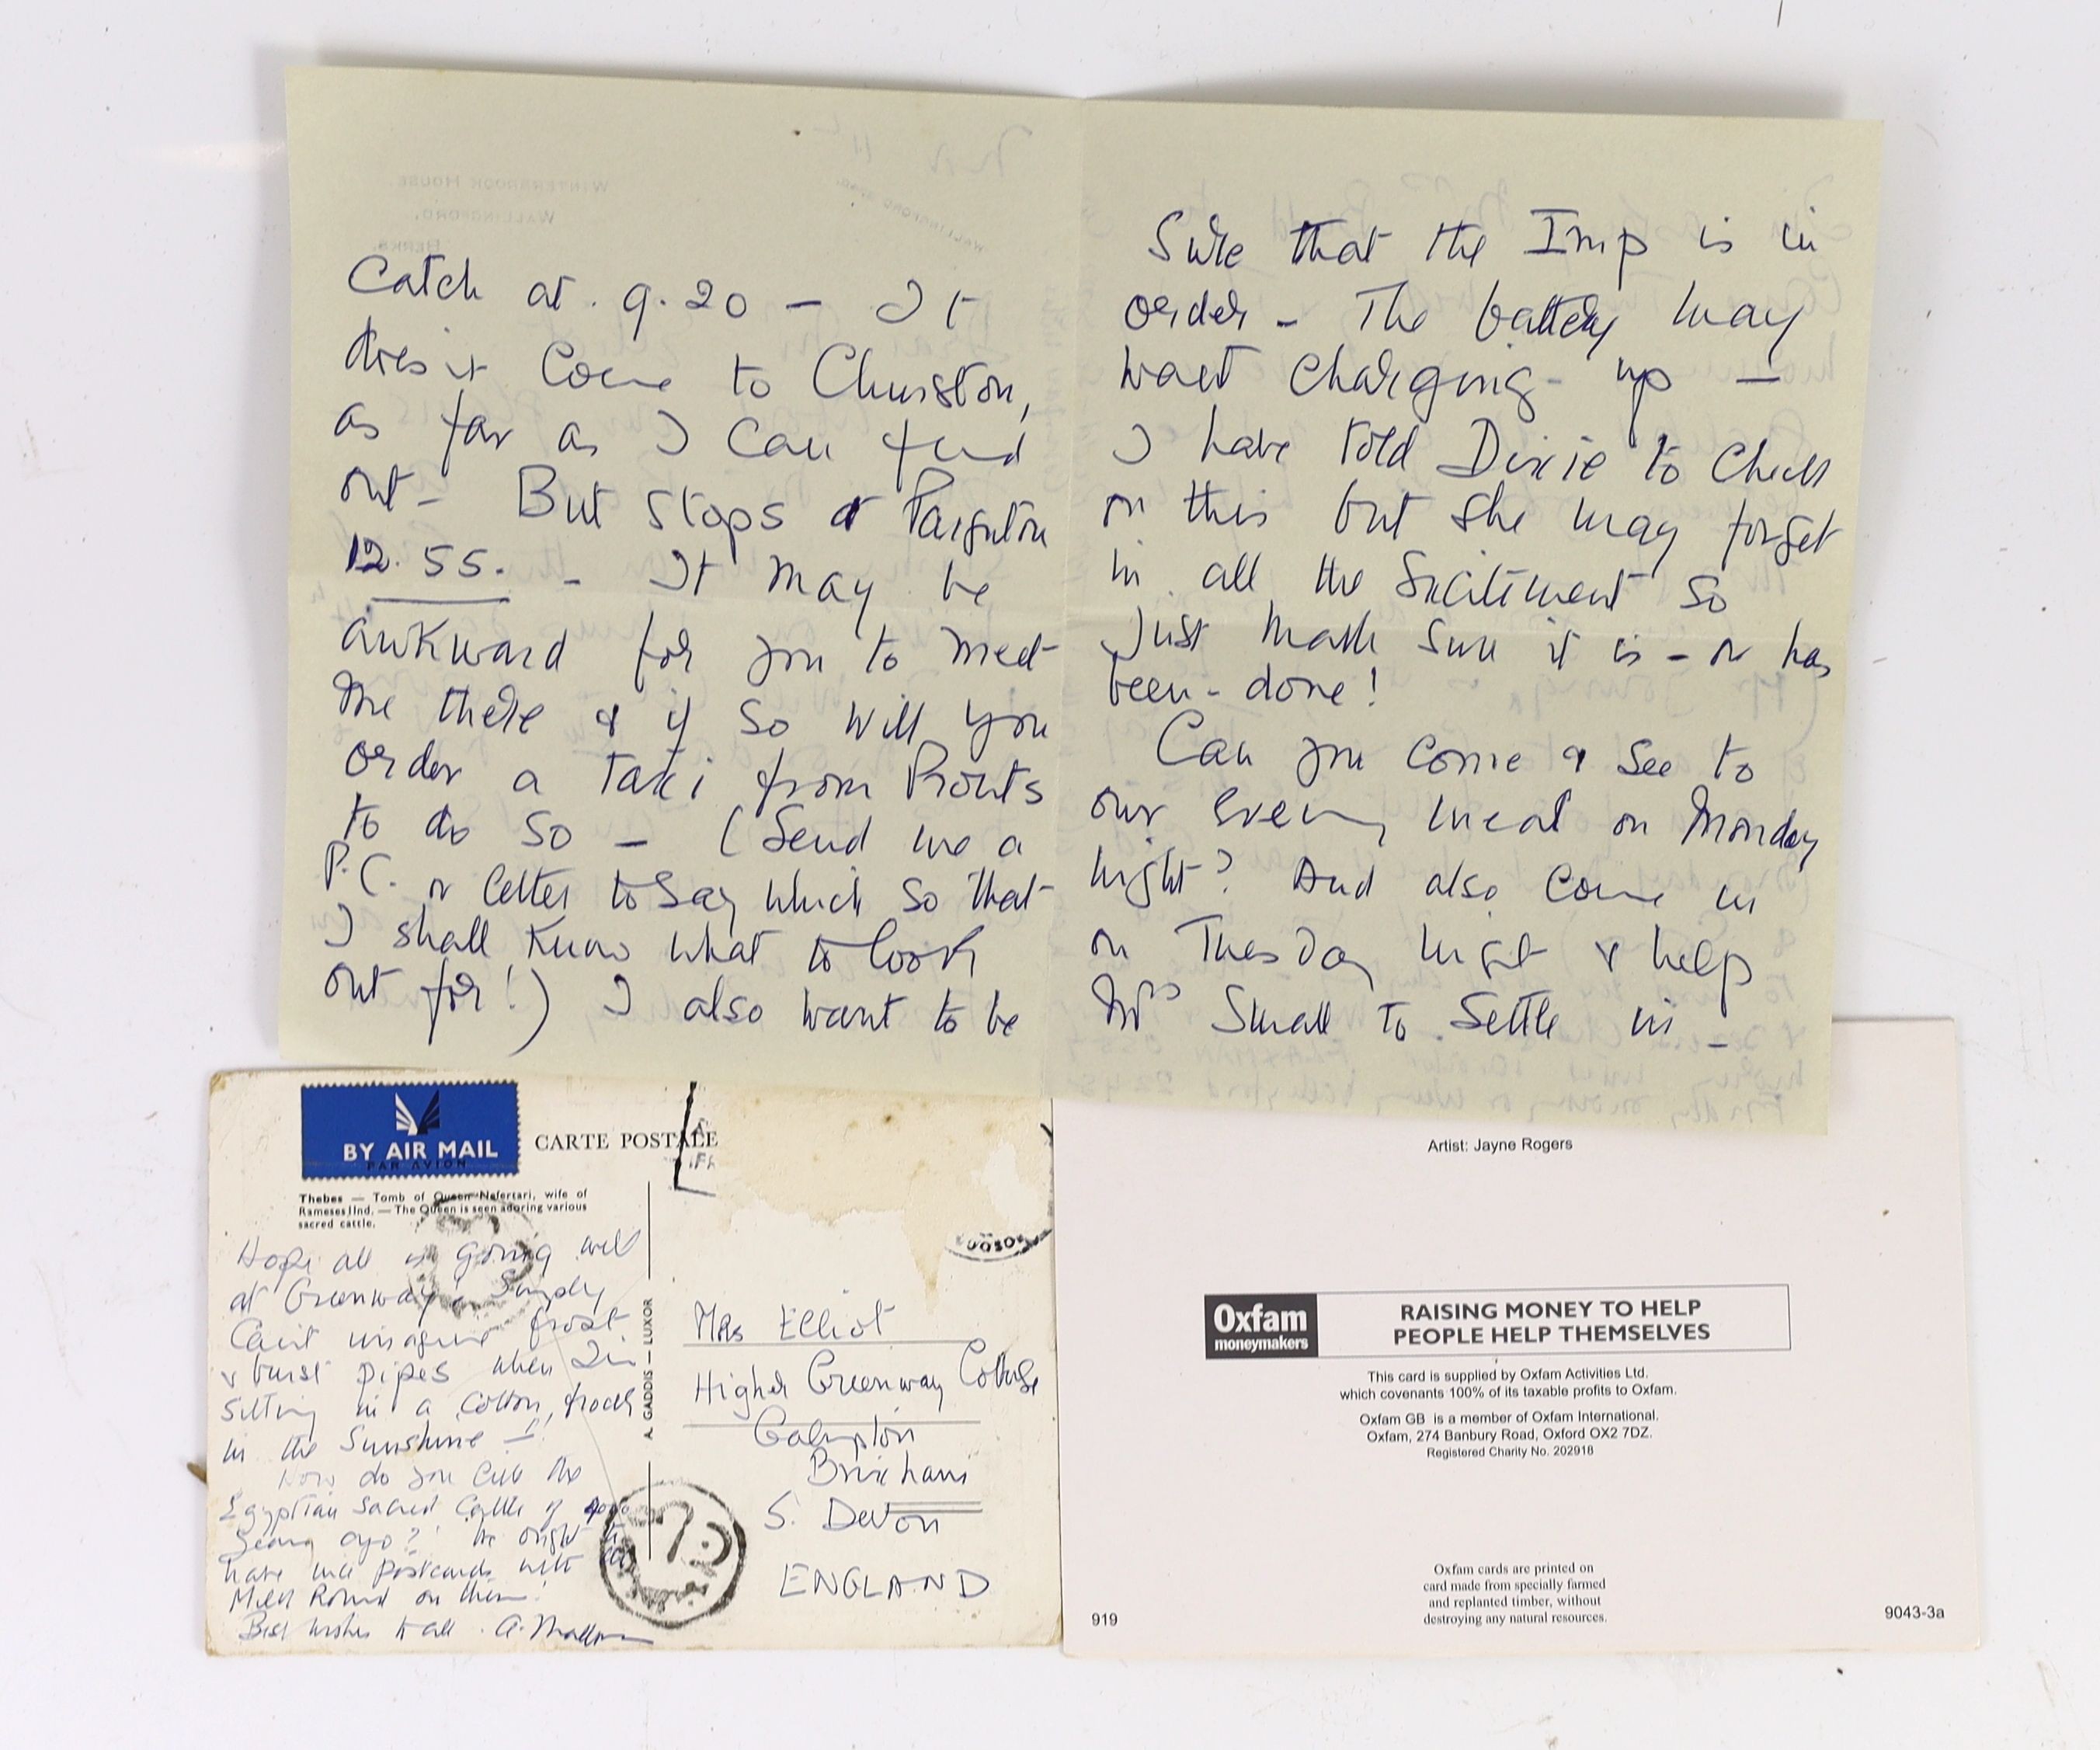 Catch at 9.20 – It
doesn't come to Churston,
as far as I can find
out – But stops at Paignton
12.55. – It may be
awkward for you to meet
me there & if so will you
order a taxi from Prouts
to do so – (Send me a
P.C. or letter to say which so that
I shall know what to look
out for!) I also want to be
Sure that the Imp is in
order – The battery may
want charging up –
I have told Dixie to check
on this but she may forget
in all the excitement so
Just make sure it is – or has
been – done!
Can you come & see to
our evening meal on Monday
night? And also come in
on Tuesday night & help
Mrs Small to settle in –
BY AIR MAIL
PAR AVION
CARTE POSTALE
Thebes — Tomb of Queen Nefertari, wife of
Rameses IInd. — The Queen is seen adoring various
sacred cattle.
Hope all is going well
at Greenway. Simply
Can't imagine frost
& burst pipes when I'm
sitting in a cotton frock
in the Sunshine –!
How do you like the
Egyptian Sacred Cattle of
years ago? We ought to
have nice postcards with
Milk Round on them!
Best wishes to all. A. Mallowan
A. GADDIS — LUXOR
Mrs Elliot
Higher Greenway Cottage
Galmpton
Brixham
S. Devon
ENGLAND
Artist: Jayne Rogers
Oxfam
moneymakers
RAISING MONEY TO HELP
PEOPLE HELP THEMSELVES
This card is supplied by Oxfam Activities Ltd.
which covenants 100% of its taxable profits to Oxfam.
Oxfam GB is a member of Oxfam International.
Oxfam, 274 Banbury Road, Oxford OX2 7DZ.
Registered Charity No. 202918
Oxfam cards are printed on
card made from specially farmed
and replanted timber, without
destroying any natural resources.
919
9043-3a